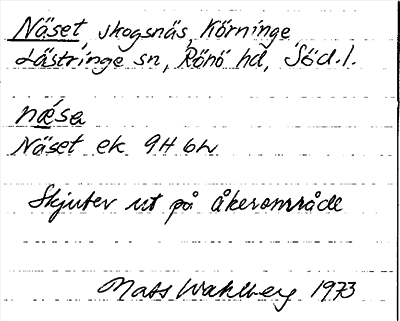 Näset, skogsnäs, Körninge,
Lästringe sn, Rönö hd, Söd.l.
næ´sa
Näset ek 9H 6h
Skjuter ut på åkerområde
Mats Wahlberg 1973